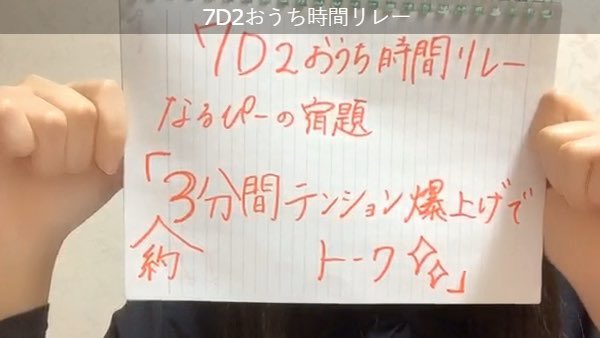 7D2おうち時間リレー
7D2おうち時間リレー
なるぴーの宿題
「3分間テンション爆上げで
約
トーク✨」